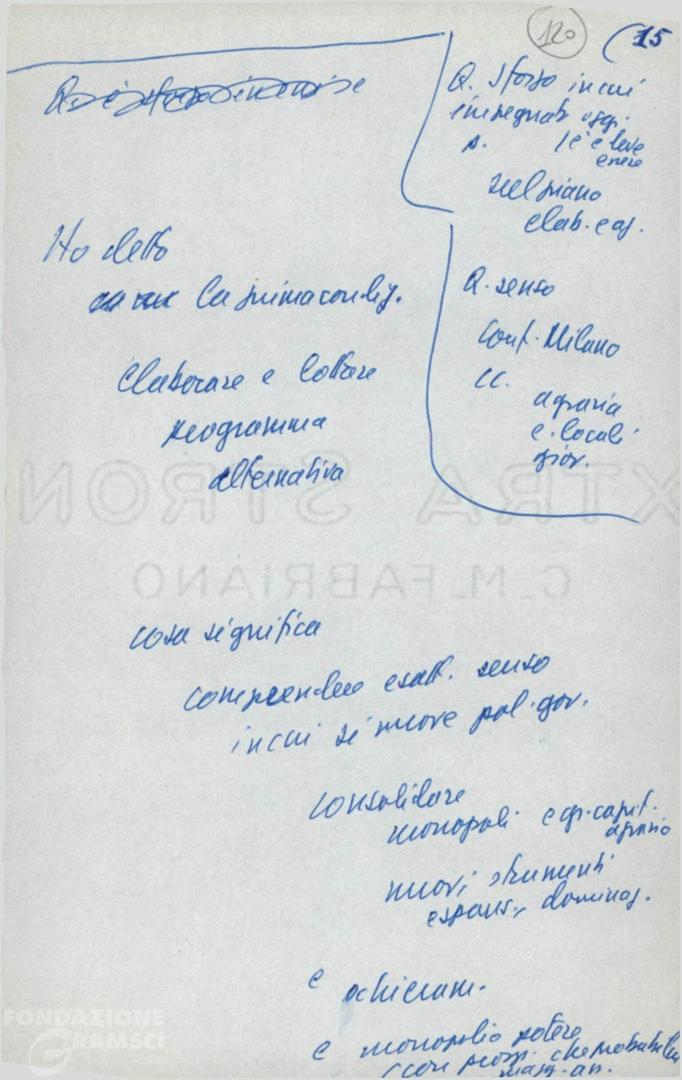 120
15
Q. sforzo in cui
impegnati oggi
p. 1° e leve
enere
nel piano
elab. e az.
Ho detto
la prima condiz.
Q. senso
Conf. Milano
CC.
agraria
e. locali
giov.
elaborare e lottare
programma
alternativa
XTRA STRON
C.M. FABRIANO
cosa significa
comprendere esatt. senso
in cui si muove pol. gov.
consolidare
monopoli e gr. capit.
agrario
nuovi strumenti
espans., dominaz.
e schieram.
e monopolio potere
(con pross. che probabilm
FONDAZIONE
GRAMSCI